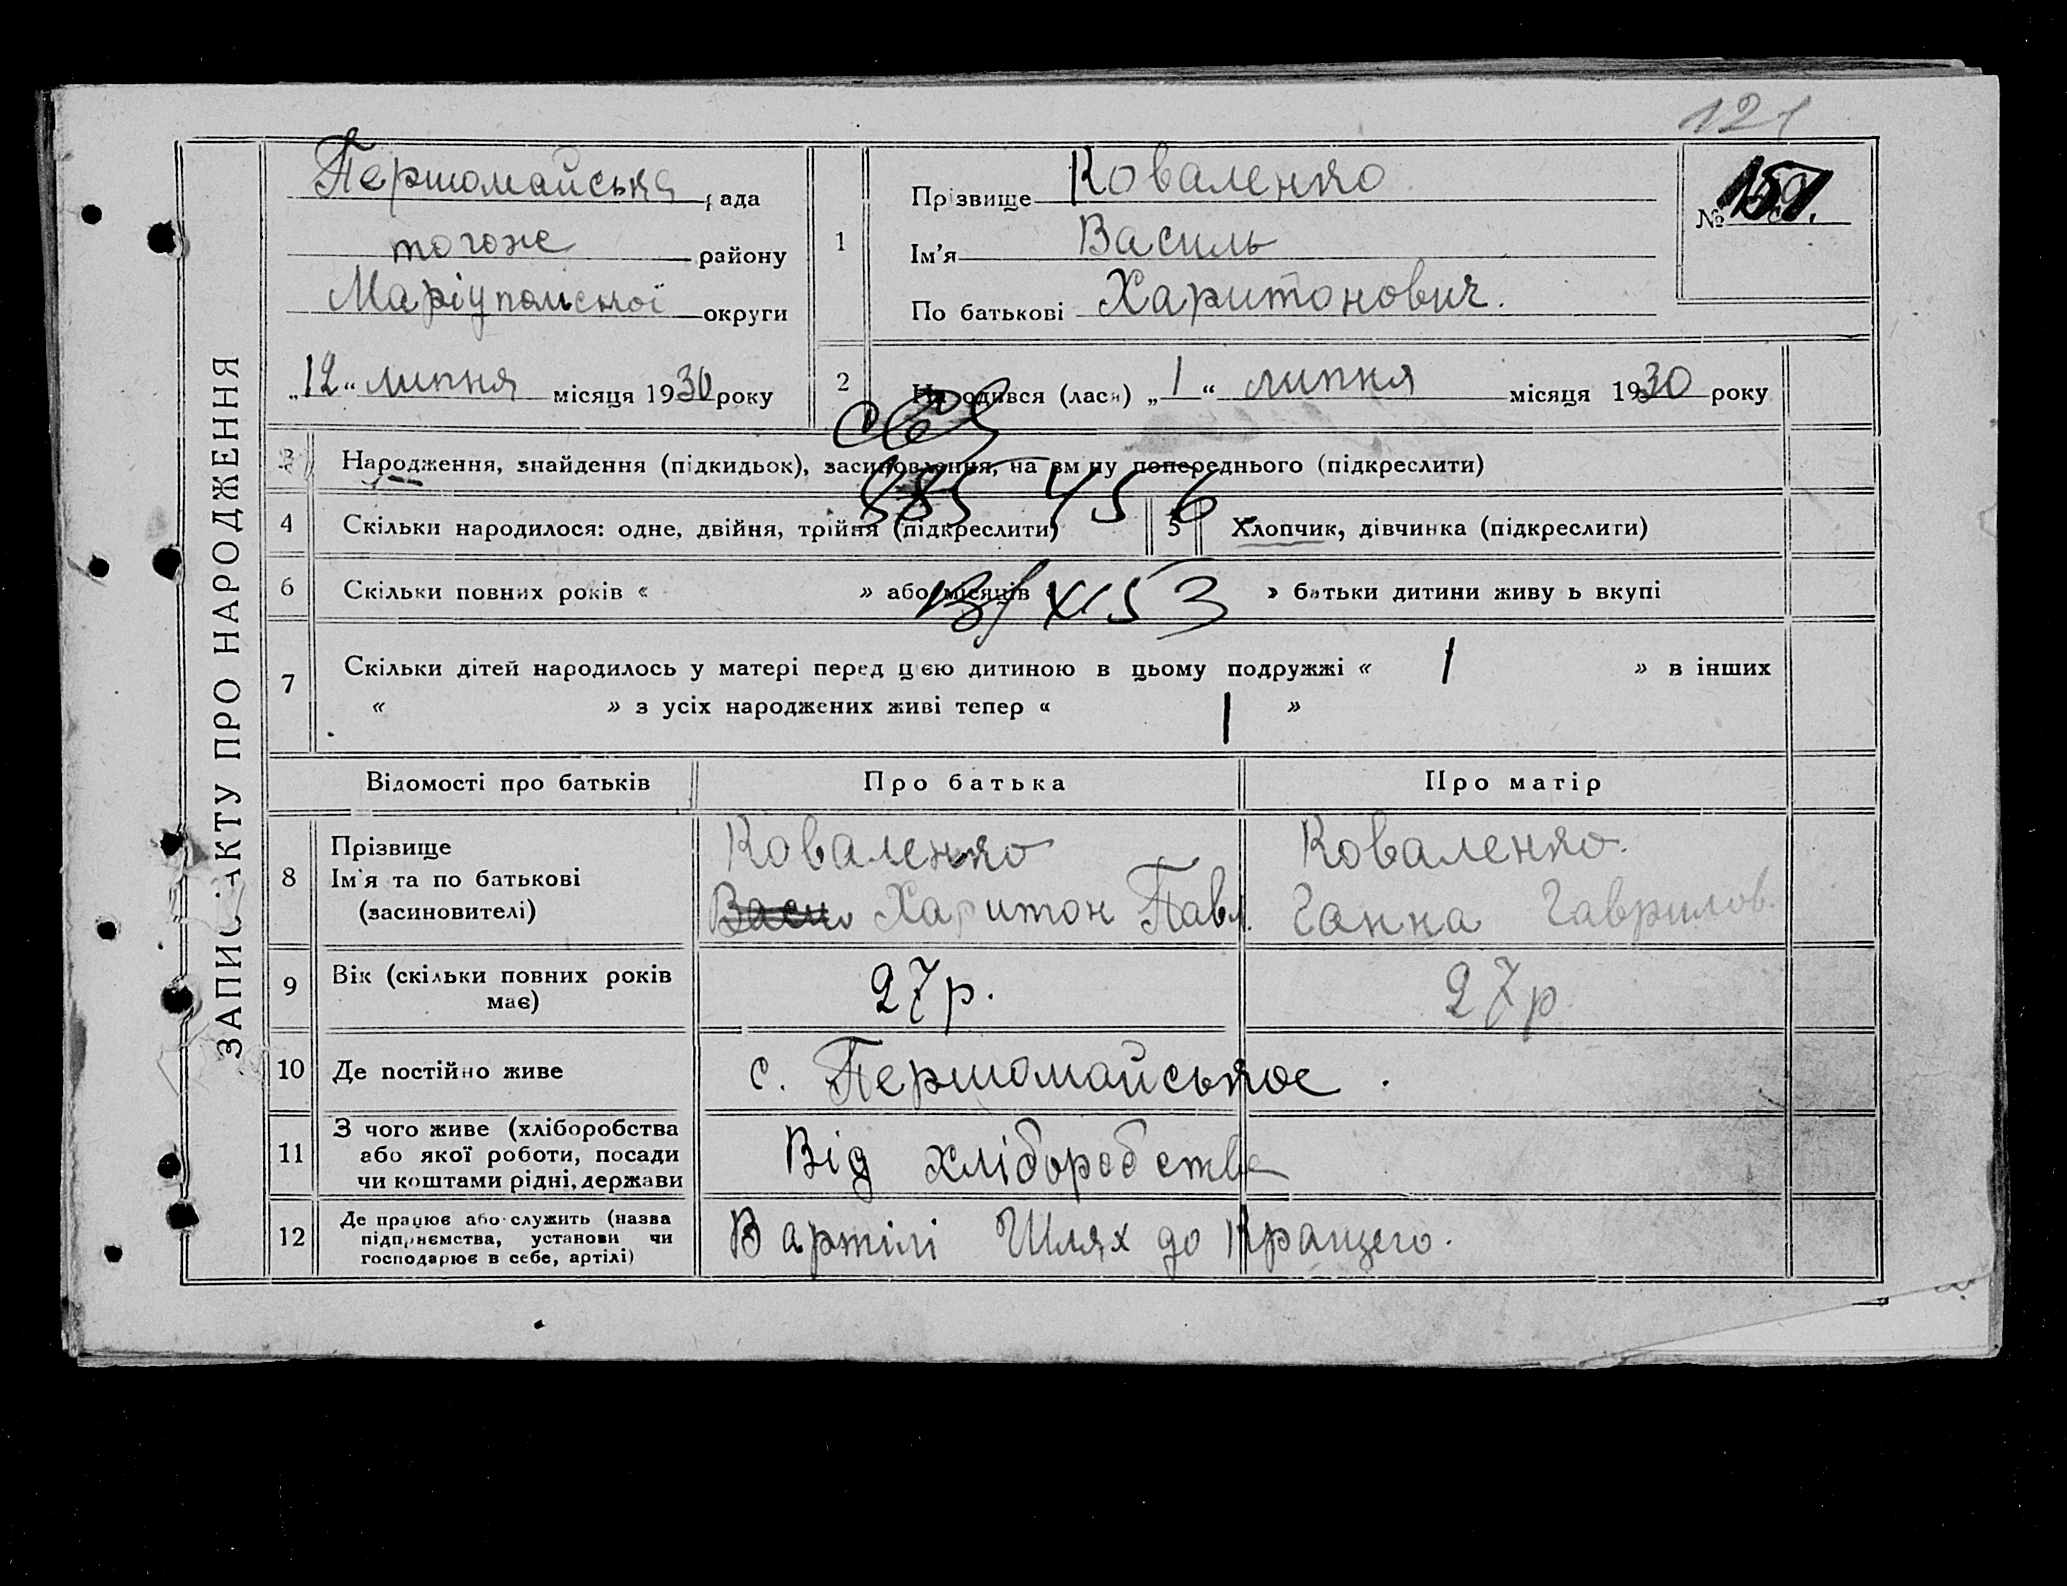 121
ЗАПИС АКТУ ПРО НАРОДЖЕННЯ
Першомайська рада
тогоже району
Маріупольської округи
„12“ липня місяця 1930 року
1
Прізвище Коваленко
Ім'я Василь
По батькові Харитонович.
№ 159.
2 Народився (лася) „1“ липня місяця 1930 року
3 Народження, знайдення (підкидьок), засиновлення, на зміну попереднього (підкреслити)
4 Скільки народилося: одне, двійня, трійня (підкреслити)
5 Хлопчик, дівчинка (підкреслити)
885456
6 Скільки повних років « » або місяців « » батьки дитини живуть вкупі
XI 53
7 Скільки дітей народилось у матері перед цією дитиною в цьому подружжі « 1 » в інших
« » з усіх народжених живі тепер « 1 »
Відомості про батьків Про батька Про матір
8 Прізвище
Ім'я та по батькові
(засиновителі)
Коваленко Коваленко.
Харитон Павл. Ганна Гаврилов.
9 Вік (скільки повних років
має)
27р. 27р
10 Де постійно живе с. Першомайське.
11 З чого живе (хліборобства
або якої роботи, посади
чи коштами рідні, держави
Від хліборобства
12 Де працює або служить (назва
підприємства, установи чи
господарює в себе, артілі)
В артілі Шлях до Кращего.